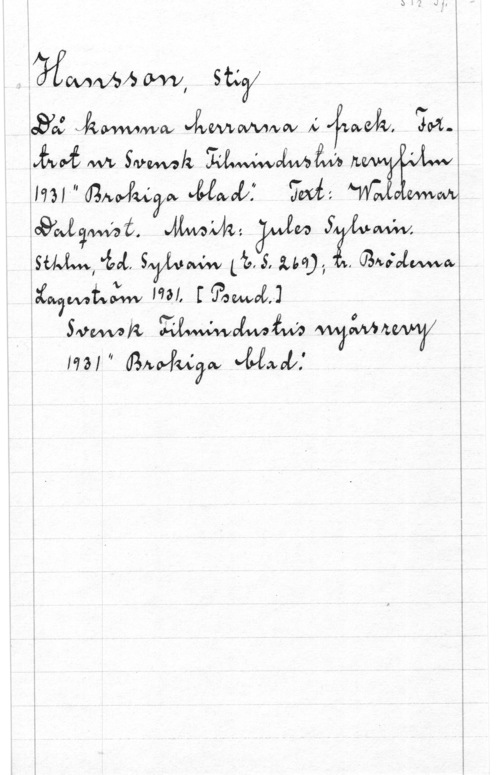 Hansson, Stig
Då komma herrarna i frack. Fox-
trot ur Svensk Filmindustris revyfilm
1931 "Brokiga blad." Text: Waldemar
Dalqvist. Musik: Jules Sylvain.
Sthlm, Ed. Sylvain (E. S. 269); tr. Bröderna
Lagerström 1931. [Pseud.]
Svensk Filmindustris nyårsrevy
1931 "Brokiga blad."